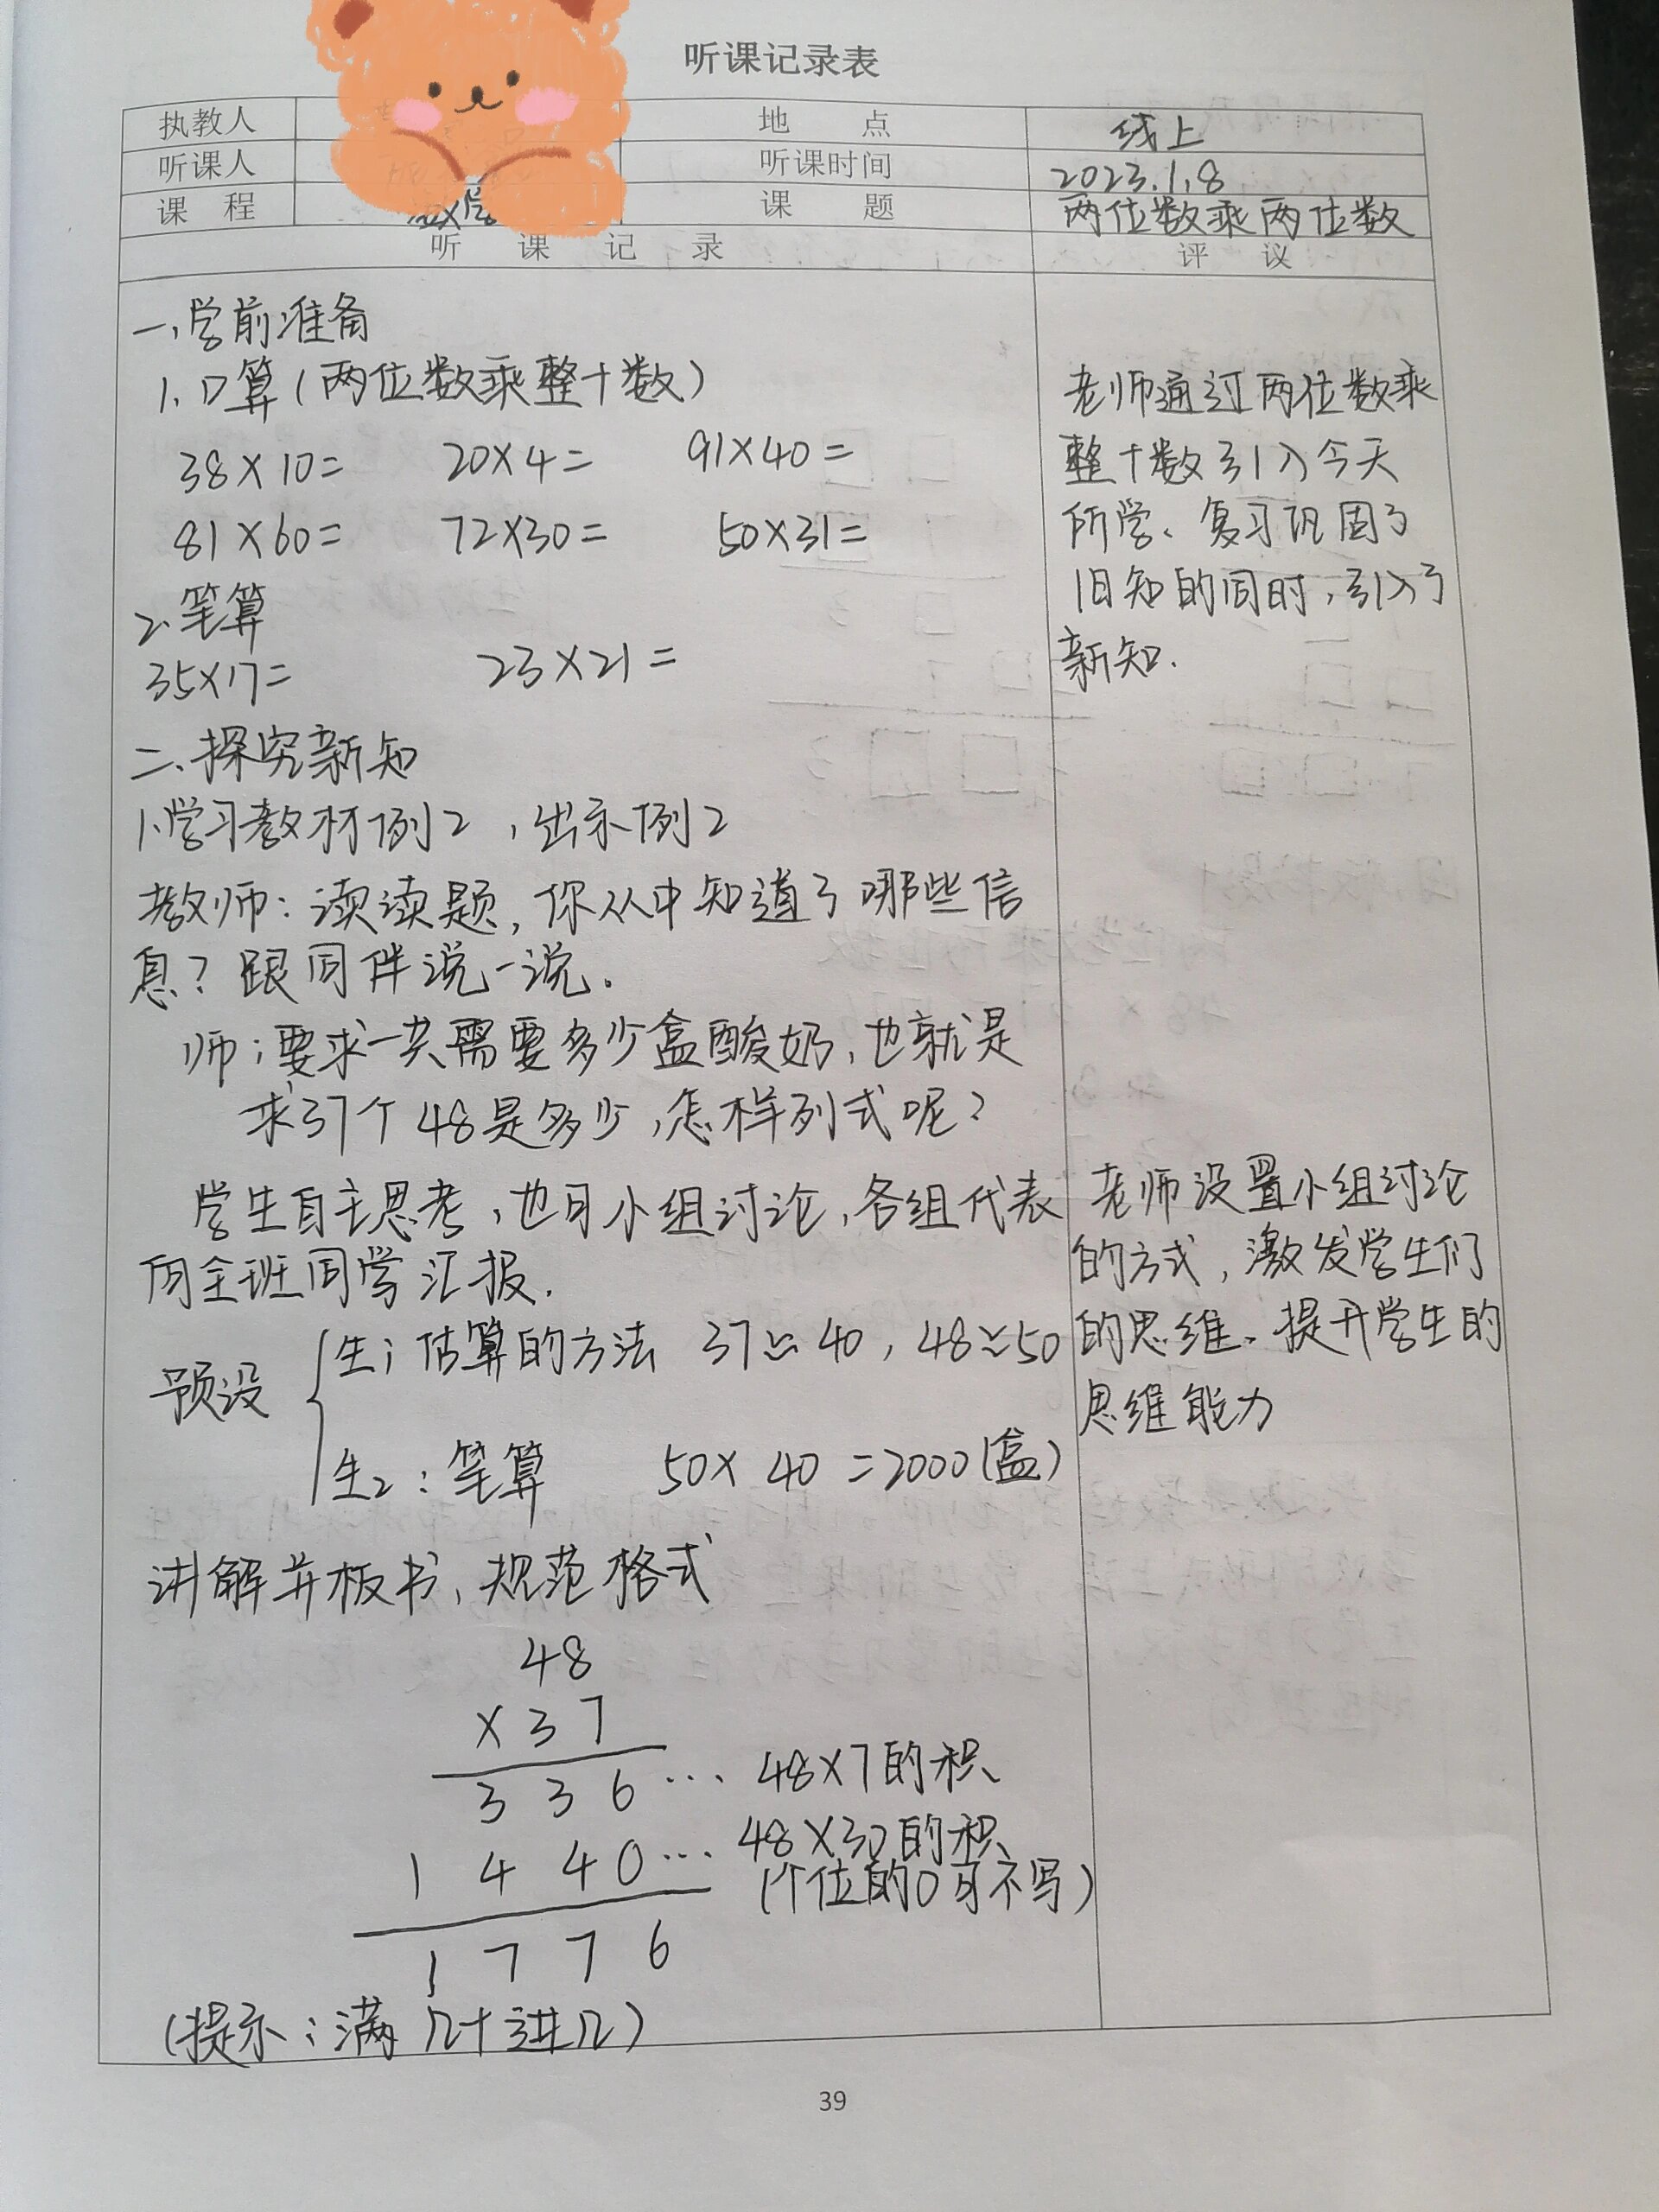 听课记录表
执教人 地 点 线上
听课人 听课时间 2023.1.8
课 程 数学 课 题 两位数乘两位数
听 课 记 录 评 议
一、学前准备
1.口算(两位数乘整十数)
38×10= 20×4= 91×40=
81×60= 72×30= 50×31=
2.笔算
35×17= 23×21=
二、探究新知
1.学习教材例2,出示例2
教师:读读题,你从中知道了哪些信
息?跟同伴说一说.
师:要求一共需要多少盒酸奶,也就是
求37个48是多少,怎样列式呢?
学生自主思考,也可小组讨论,各组代表
向全班同学汇报.
预设
生1:估算的方法 37≈40,48≈50
生2:笔算 50×40=2000(盒)
讲解并板书,规范格式
48
×37
336… 48×7的积
1440… 48×30的积
(个位的0可不写)
1776
(提示:满几十进几)
老师通过两位数乘
整十数引入今天
所学、复习巩固了
旧知的同时,引入了
新知.
老师设置小组讨论
的方式,激发学生们
的思维、提升学生的
思维能力
39